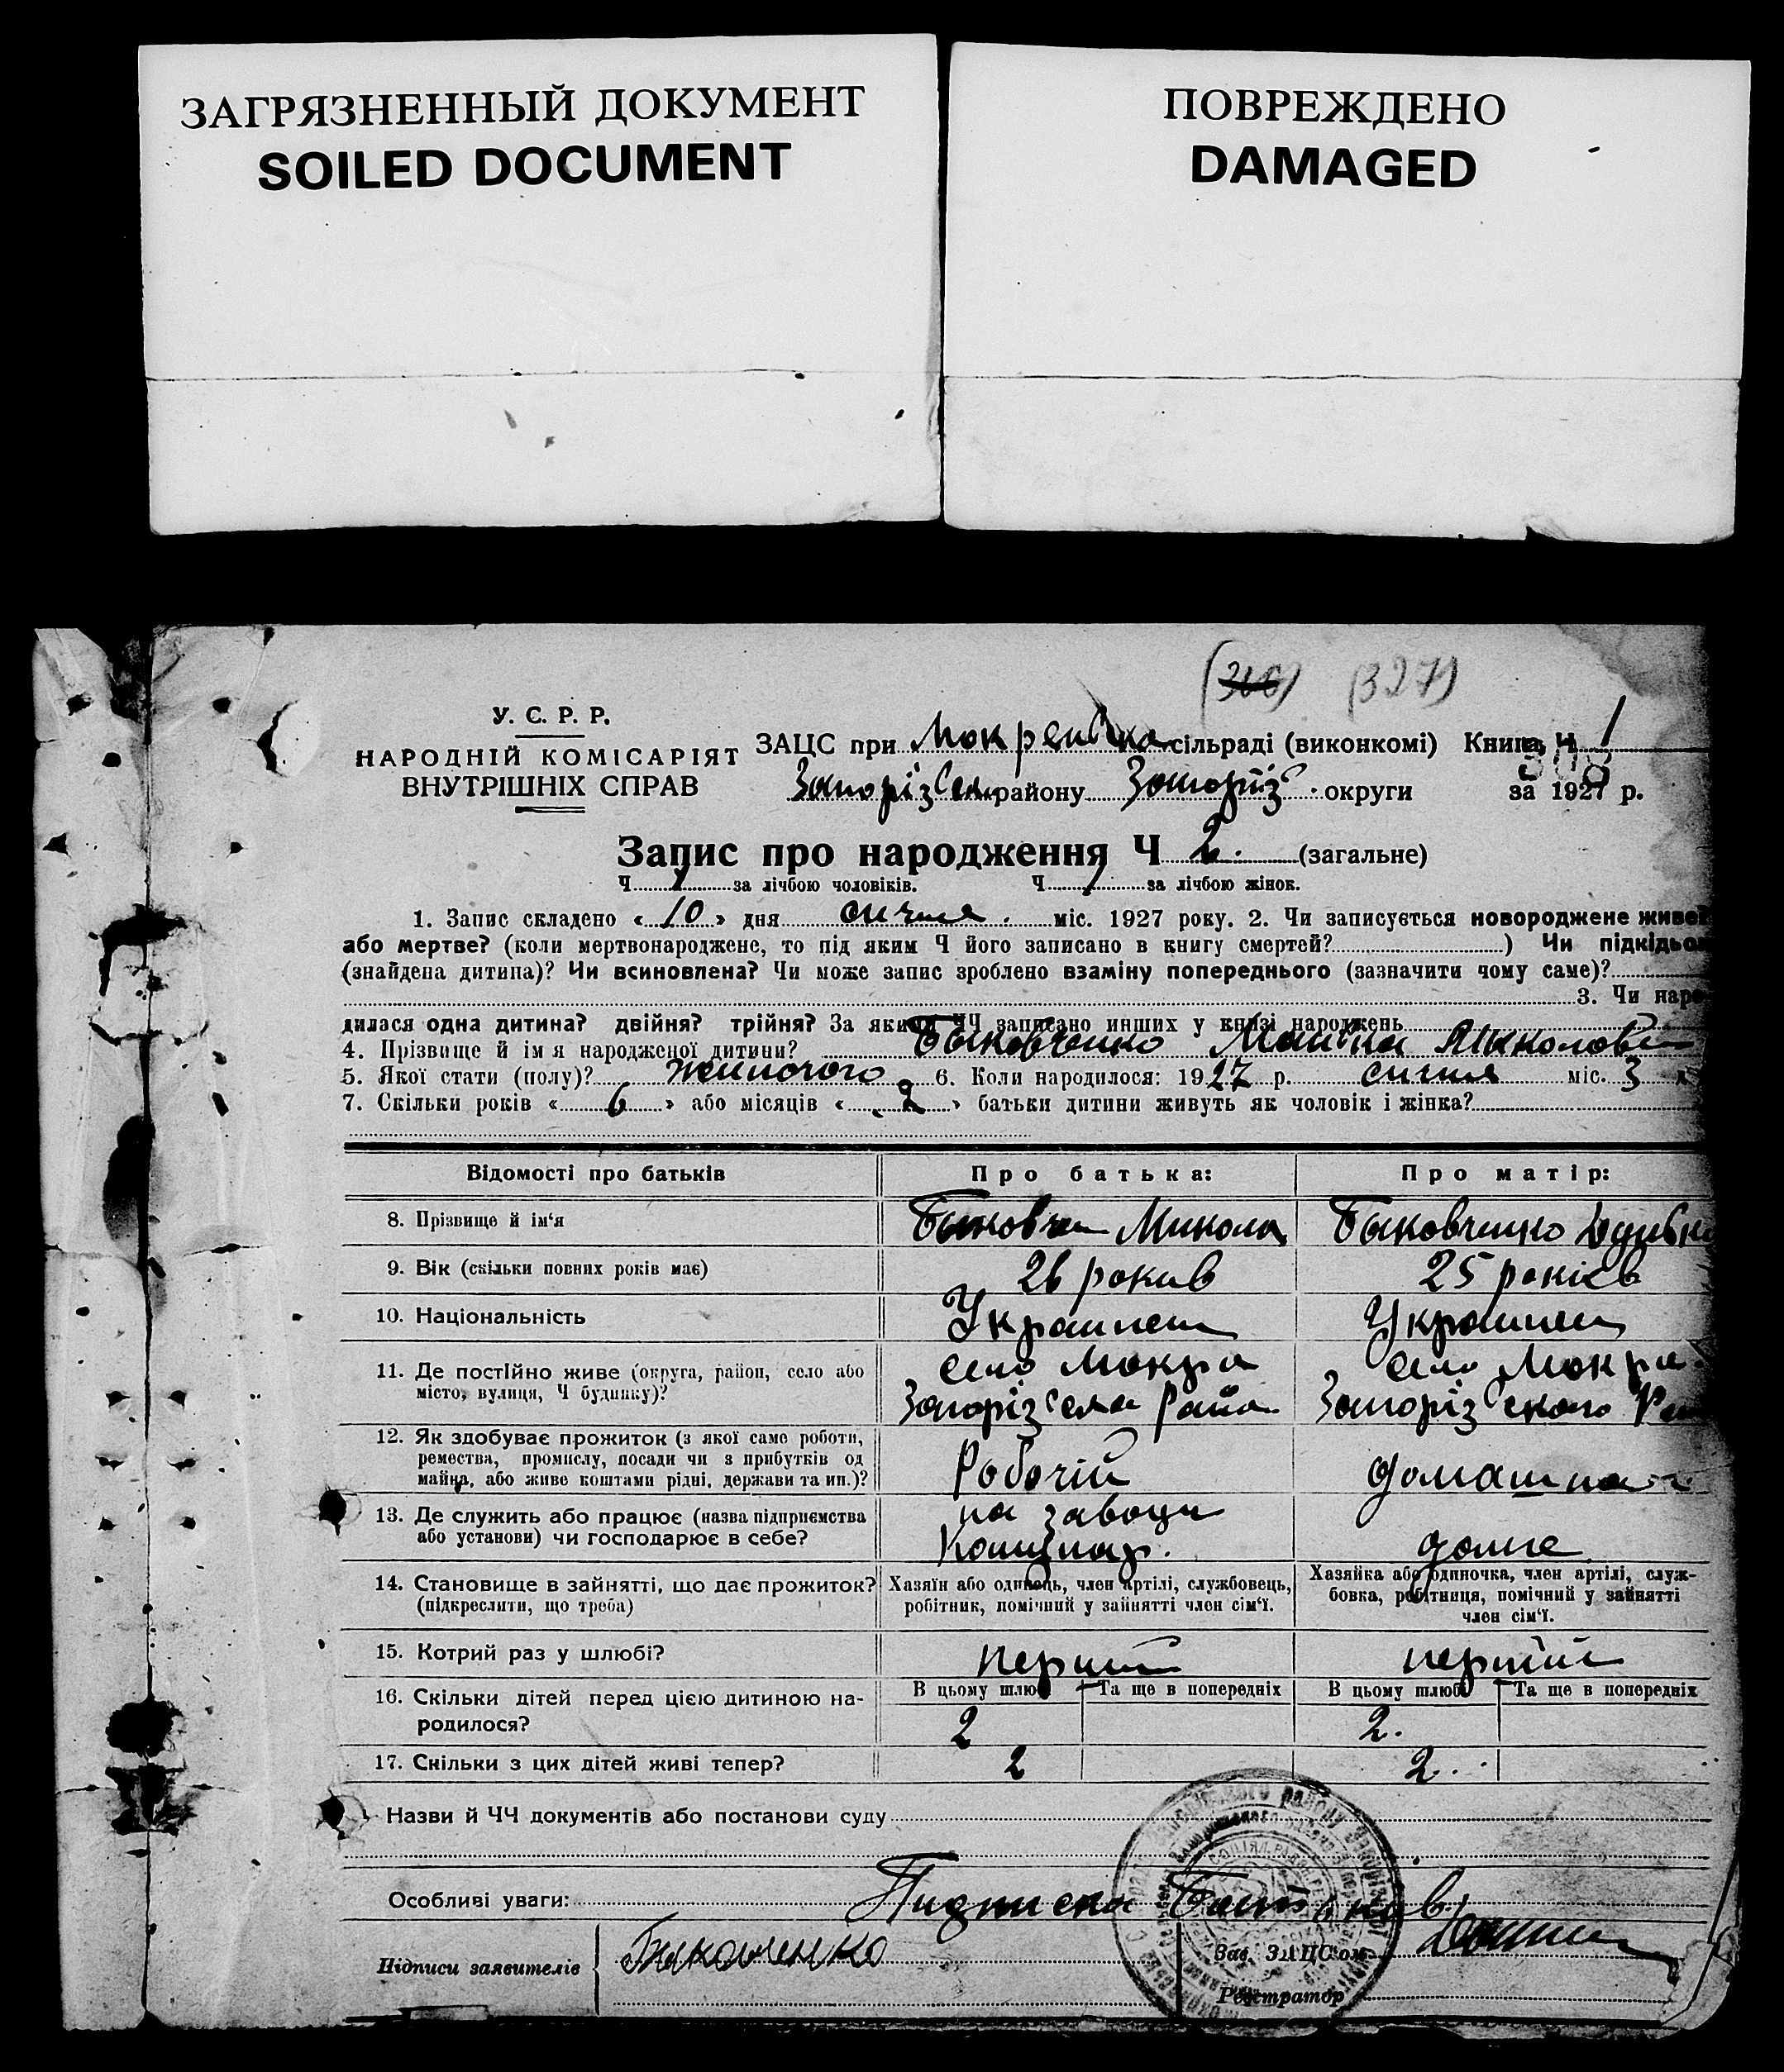 ЗАГРЯЗНЕННЫЙ ДОКУМЕНТ
SOILED DOCUMENT
ПОВРЕЖДЕНО
DAMAGED
(327)
У. С. Р. Р.
НАРОДНІЙ КОМІСАРІЯТ
ВНУТРІШНІХ СПРАВ
ЗАЦС при сільраді (виконкомі) Книга Ч 1
району округи за 1927 р.
Запис про народження Ч 2. (загальне)
Ч 1 за лічбою чоловіків. Ч 1 за лічбою жінок.
1. Запис складено «10» дня сичня. міс. 1927 року. 2. Чи записується новороджене живе?
або мертве? (коли мертвонароджене, то під яким Ч його записано в книгу смертей?) Чи підкідьок
(знайдена дитина)? Чи всиновлена? Чи може запис зроблено взаміну попереднього (зазначити чому саме)?
3. Чи наро-
дилася одна дитина? двійня? трійня? За якими ЧЧ записано инших у книзі народжень
4. Прізвище й ім'я народженої дитини? Быковченко
5. Якої стати (полу)? жиночого 6. Коли народилося: 1927 р. сичня міс. 3
7. Скільки років «6» або місяців «2» батьки дитини живуть як чоловік і жінка?
Відомості про батьків Про батька: Про матір:
8. Прізвище й ім‘я Микола Быковченко
9. Вік (скільки повних років має) 26 рокив 25 рокієв
10. Національність
11. Де постійно живе (округа, район, село або
місто, вулиця, Ч будинку)?
село Мокра село Мокра
12. Як здобуває прожиток (з якої саме роботи,
ремества, промислу, посади чи з прибутків од
майна, або живе коштами рідні, держави та ин.)?
Робочій
13. Де служить або працює (назва підприємства
або установи) чи господарює в себе?
на заводи
Комунар. доме
14. Становище в зайнятті, що дає прожиток?
(підкреслити, що треба)
Хазяїн або одинець, член артілі, службовець,
робітник, помічний у зайнятті член сім‘ї.
Хазяйка або одиночка, член артілі, служ-
бовка, робітниця, помічний у зайнятті
член сім‘ї.
15. Котрий раз у шлюбі? перший перший
16. Скільки дітей перед цією дитиною на-
родилося?
В цьому шлюбі Та ще в попередніх В цьому шлюбі Та ще в попередніх
2 2.
17. Скільки з цих дітей живі тепер? 2 2.
Назви й ЧЧ документів або постанови суду
Особливі уваги:
Підписи заявителів
Зав. ЗАЦС'ом
Реєстратор